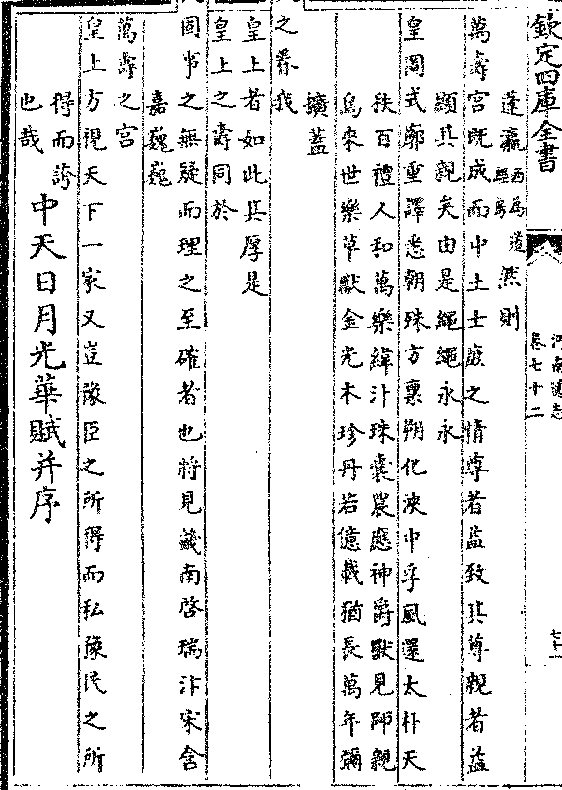 欽定四庫全書
河南通志
卷七十二
七十一
蓬瀛
然則
萬壽宮既成而中土士庶之情尊者益致其尊親者益
顯其親矣由是繩繩永永
皇圖式廓重譯悉朝殊方稟朔化泱中孚風還太朴天
秩百禮人和萬樂緯汁珠囊晨應神爵獸見師親
烏來世樂草獻金光木珍丹若億載猶長萬年彌
擴蓋
之眷我
皇上者如此其厚是
皇上之壽同於
固事之無疑而理之至確者也將見南啓瑞汴宋含
嘉巍巍
萬壽之宮
皇上方視天下一家又豈豫臣之所得而私豫民之所
得而誇
也哉
中天日月光華賦并序